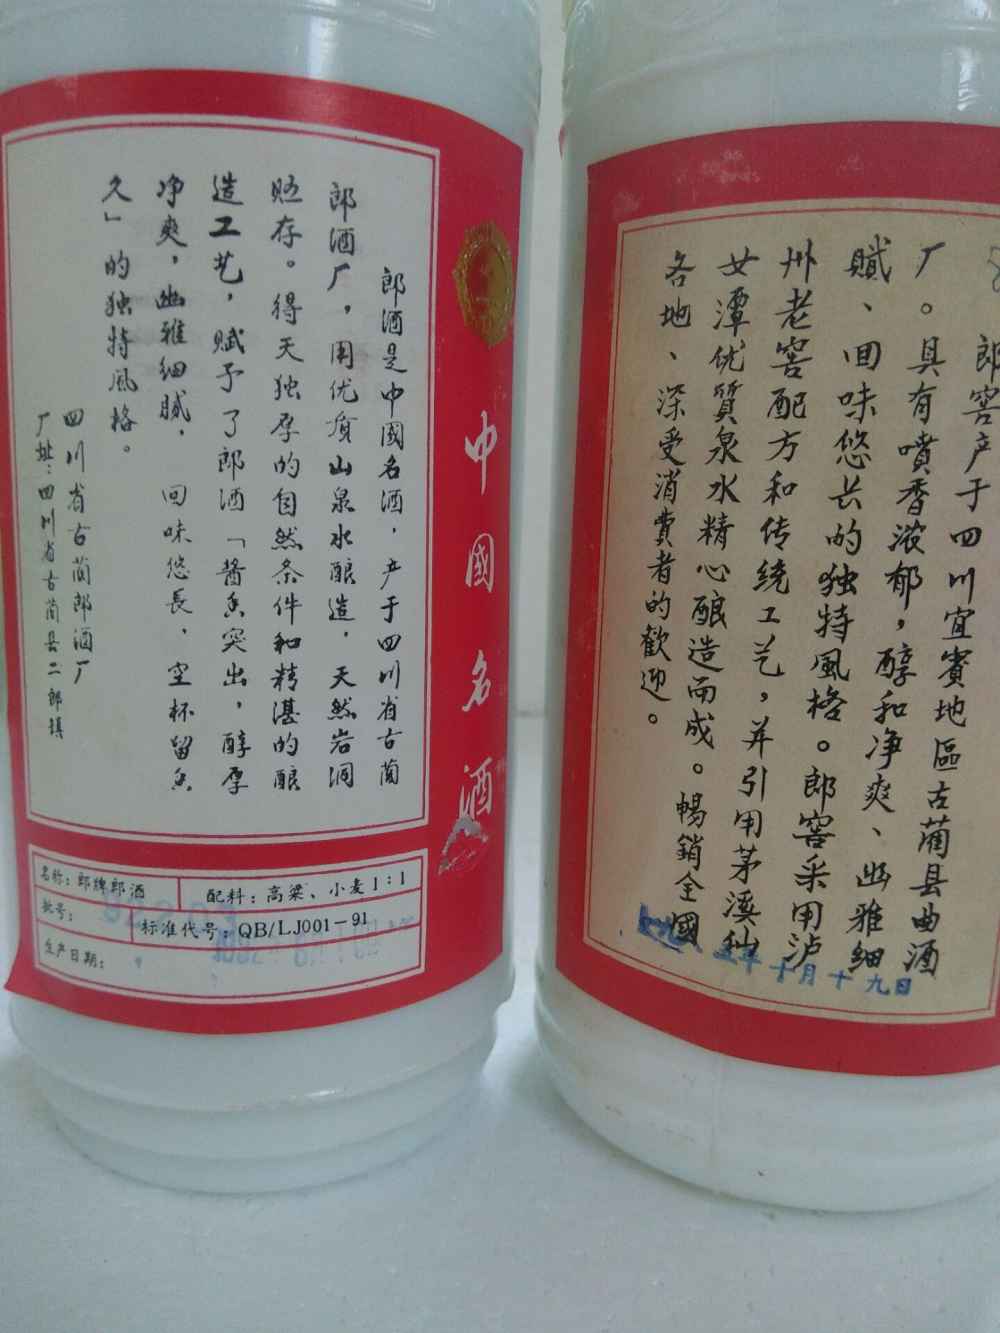 郎酒是中國名酒，产于四川省古蔺
郎酒厂，用优质山泉水酿造，天然岩洞
贮存。得天独厚的自然条件和精湛的酿
造工艺，赋予了郎酒「酱香突出，醇厚
净爽，幽雅细腻，回味悠長，空杯留香
久」的独特風格。
四川省古蔺郎酒厂
厂址：四川省古蔺县二郎镇
中國名酒
名称：郎牌郎酒
配料：高粱、小麦1:1
批号：
标准代号：QB/LJ001-91
生产日期：
郎窖产于四川宜賓地區古蔺县曲酒
厂。具有噴香浓郁，醇和净爽、幽雅细
腻、回味悠长的独特風格。郎窖采用泸
州老窖配方和传统工艺，并引用茅溪仙
女潭优質泉水精心酿造而成。暢銷全國
各地、深受消費者的歡迎。
五年十月十九日